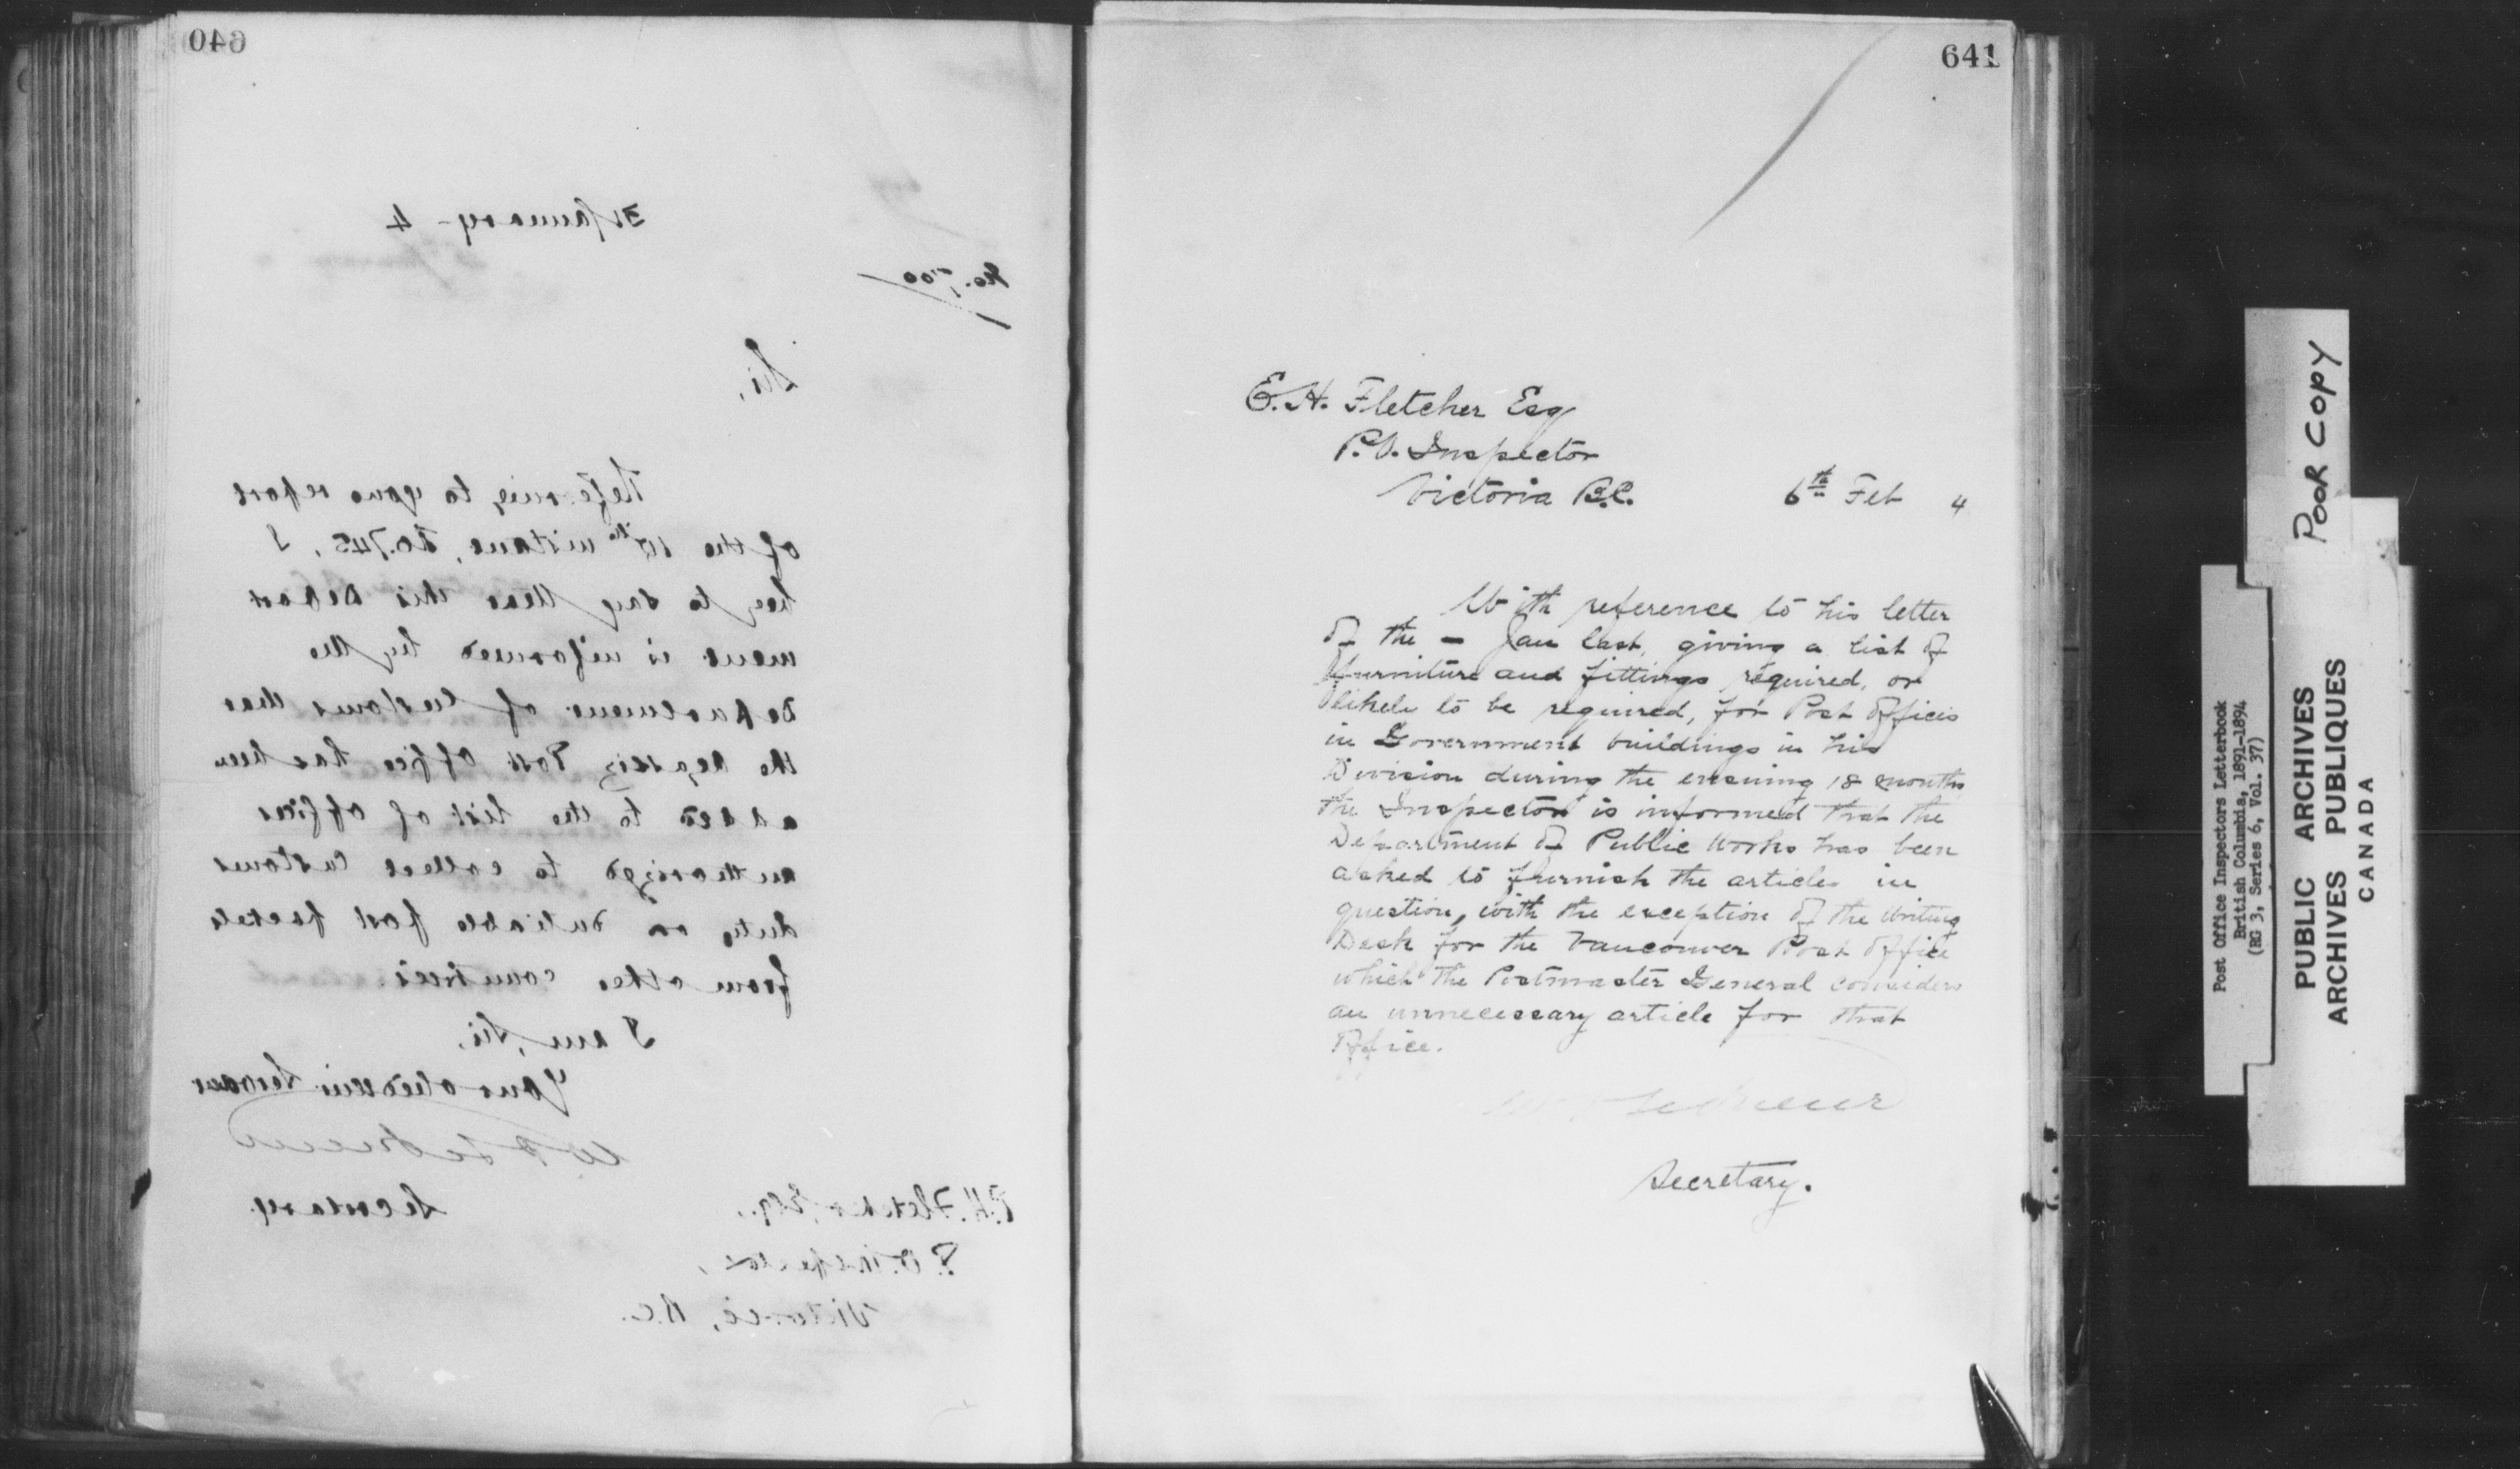 640
31 January - 4
No. 700
Sir,
Referring to your report
of the 10th instant, No. 745, I
beg to say that this Depart
ment is informed by the
Department of Customs that
the Post Office has been
added to the list of offices
authorized to collect Customs
duty on dutiable post packets
from other countries.
I am, Sir,
Your obedient Servant
Secretary
E.H. Fletcher, Esq.,
P.O. Inspector,
Victoria, B.C.
641
E. H. Fletcher Esq
P.O. Inspector
Victoria B.C.
6th Feb 4
With reference to his letter
of the - Jan last, giving a list of
furniture and fittings required, or
likely to be required, for Post Offices
in Government buildings in his
Division during the ensuing 18 months
the Inspector is informed that the
Department of Public Works has been
asked to furnish the articles in
question, with the exception of the Writing
Desk for the Vancouver Post Office
which the Postmaster General considers
an unnecessary article for that
Office.
Secretary.
Post Office Inspectors Letterbook
British Columbia, 1891-1894
(RG 3, Series 6, Vol. 37)
POOR COPY
PUBLIC ARCHIVES
ARCHIVES PUBLIQUES
CANADA